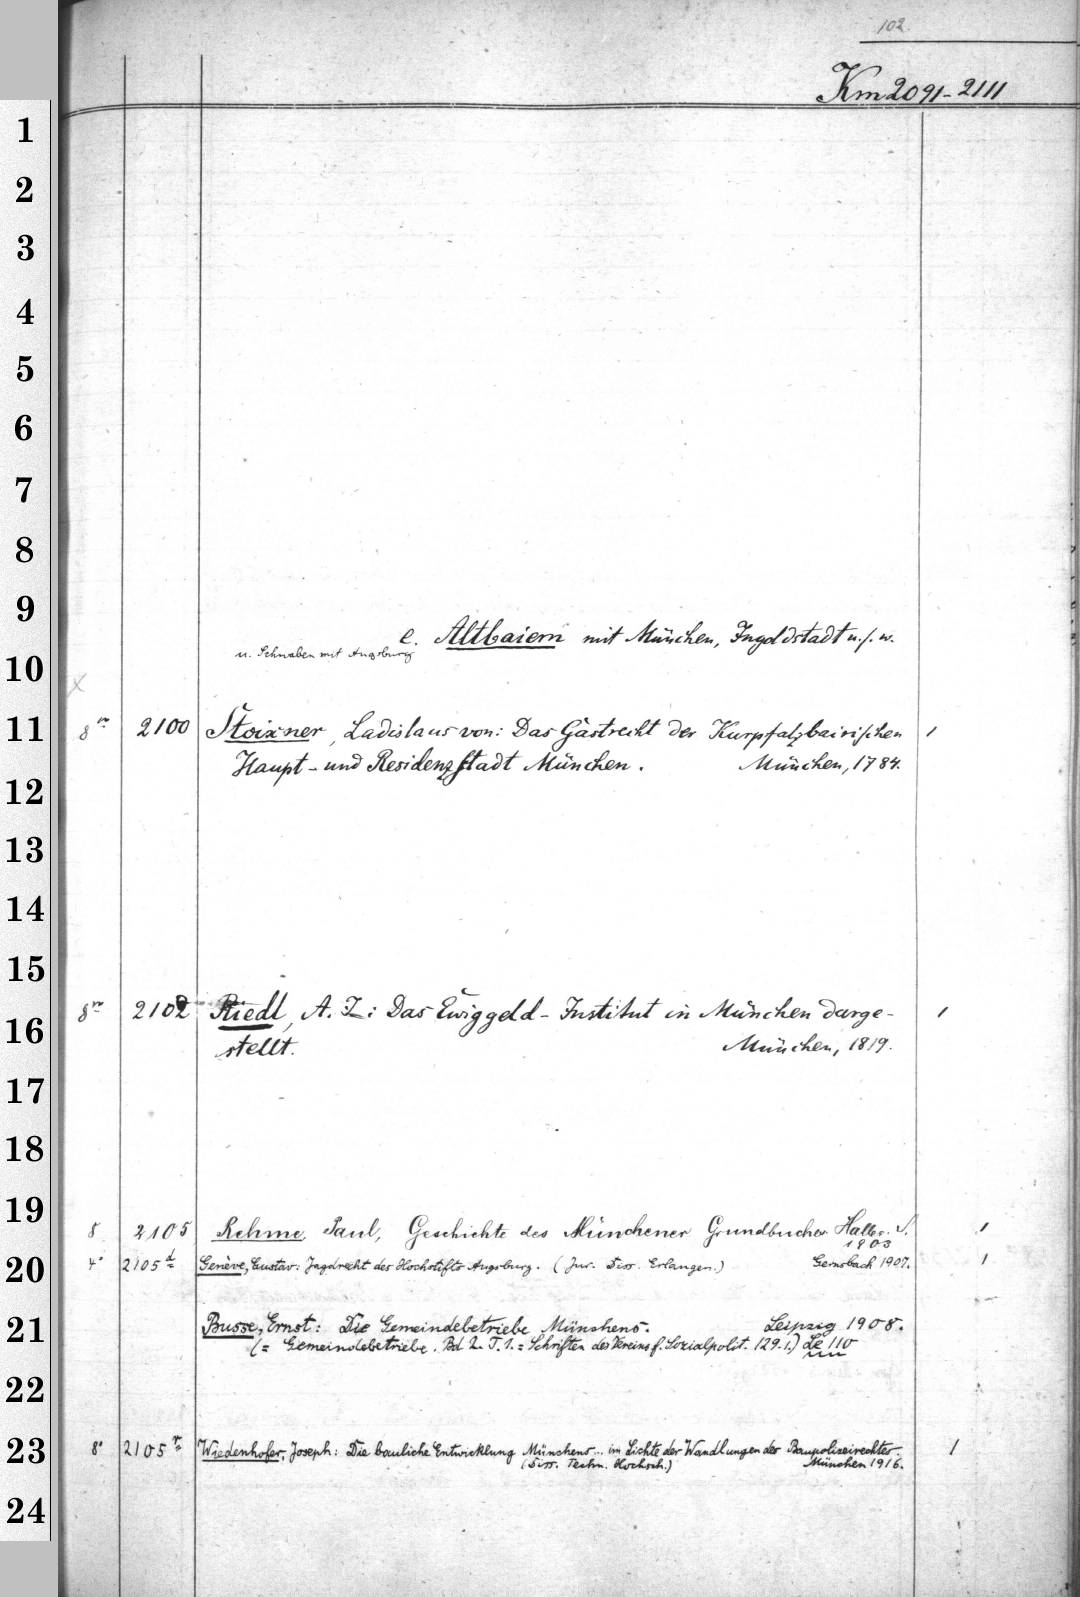 102.
Km 2091-2111
1
2
3
4
5
6
7
8
9
e. Altbaiern mit München, Ingoldstadt u.s.w.
u. Schwaben mit Augsburg
10
11
8vo 2100 Stoixner, Ladislaus von: Das Gastrecht der Kurpfalzbairischen 1
Haupt- und Residenzstadt München. München, 1784.
12
13
14
15
8vo 2102 Riedl, A. I.: Das Ewiggeld-Institut in München darge-
16
stellt. München, 1819.
17
18
19
8 2105 Rehme, Paul, Geschichte des Münchener Grundbuches. Halle a. S. 1
1903
20
4° 2105 d Genève, Gustav: Jagdrecht des Hochstifts Augsburg. (Jur. Diss. Erlangen.) Gernsbach 1907. 1
21
Busse, Ernst: Die Gemeindebetriebe Münchens. Leipzig 1908.
(= Gemeindebetriebe. Bd 2. T. 1. = Schriften des Vereins f. Sozialpolit. 129.1.) Le 110
22
23
8° 2105 Wiedenhofer, Joseph: Die bauliche Entwicklung Münchens... im Lichte der Wandlungen der Baupolizeirechtes. 1
(Diss. Techn. Hochsch.) München 1916.
24